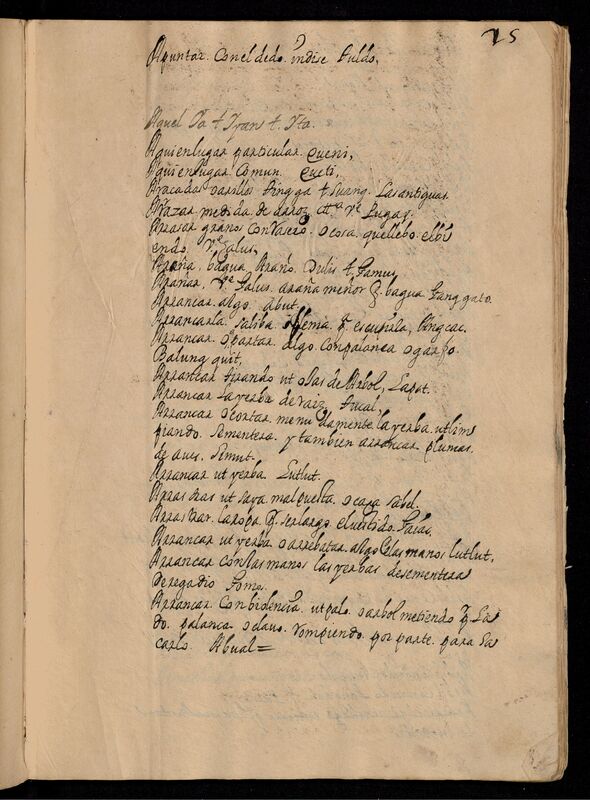 25
Apuntar. Con el dedo. indise tuldo,
Aquel Ya t Iyan t. Yta.
Aqui en lugar particular. queni,
Aqui en lugar Comun. queti,
Aracadas sarillos tingga t suang. Las antiguas.
Arazar medida de arroz
Arrasar granos Con rasero. o cosa. que llebo. el bi
endo. Salus,
Araña. bagua. Araño. Culis t. Gamus
Arañar. Salus. araña menor bagua. Lang gato.
Arrancar algo abut.
Arrancarla. saliba. o flema. escupirla, Angcac.
Arrancar. o partar. algo. Con palanca o garfio.
Balung quit,
Arrancar tirando ut olas de Arbol, Lapat.
Arrancar la yerba de raiz tucal
Arrancar o cortar. menudamente la yerba. ut lim
piando. Sementera. y tambien arrancar plumas.
de aues. Simut.
Arrancar ut yerba Lutlut.
Arrastrar ut saya. mal puesta. o capa Sabil.
Arrastrar. La ropa ser largo. el uestido.
Arrancar ut yerba o arrebatar. algo Con las manos Lutlut.
Arrancar con las manos las yerbas de sementera
de regadio Gomo.
Arrancar. Con biolencia. ut palo. o arbol metiendo
do. palanca o clauo. rompiendo. por parte. para sa
carlo. Abual=